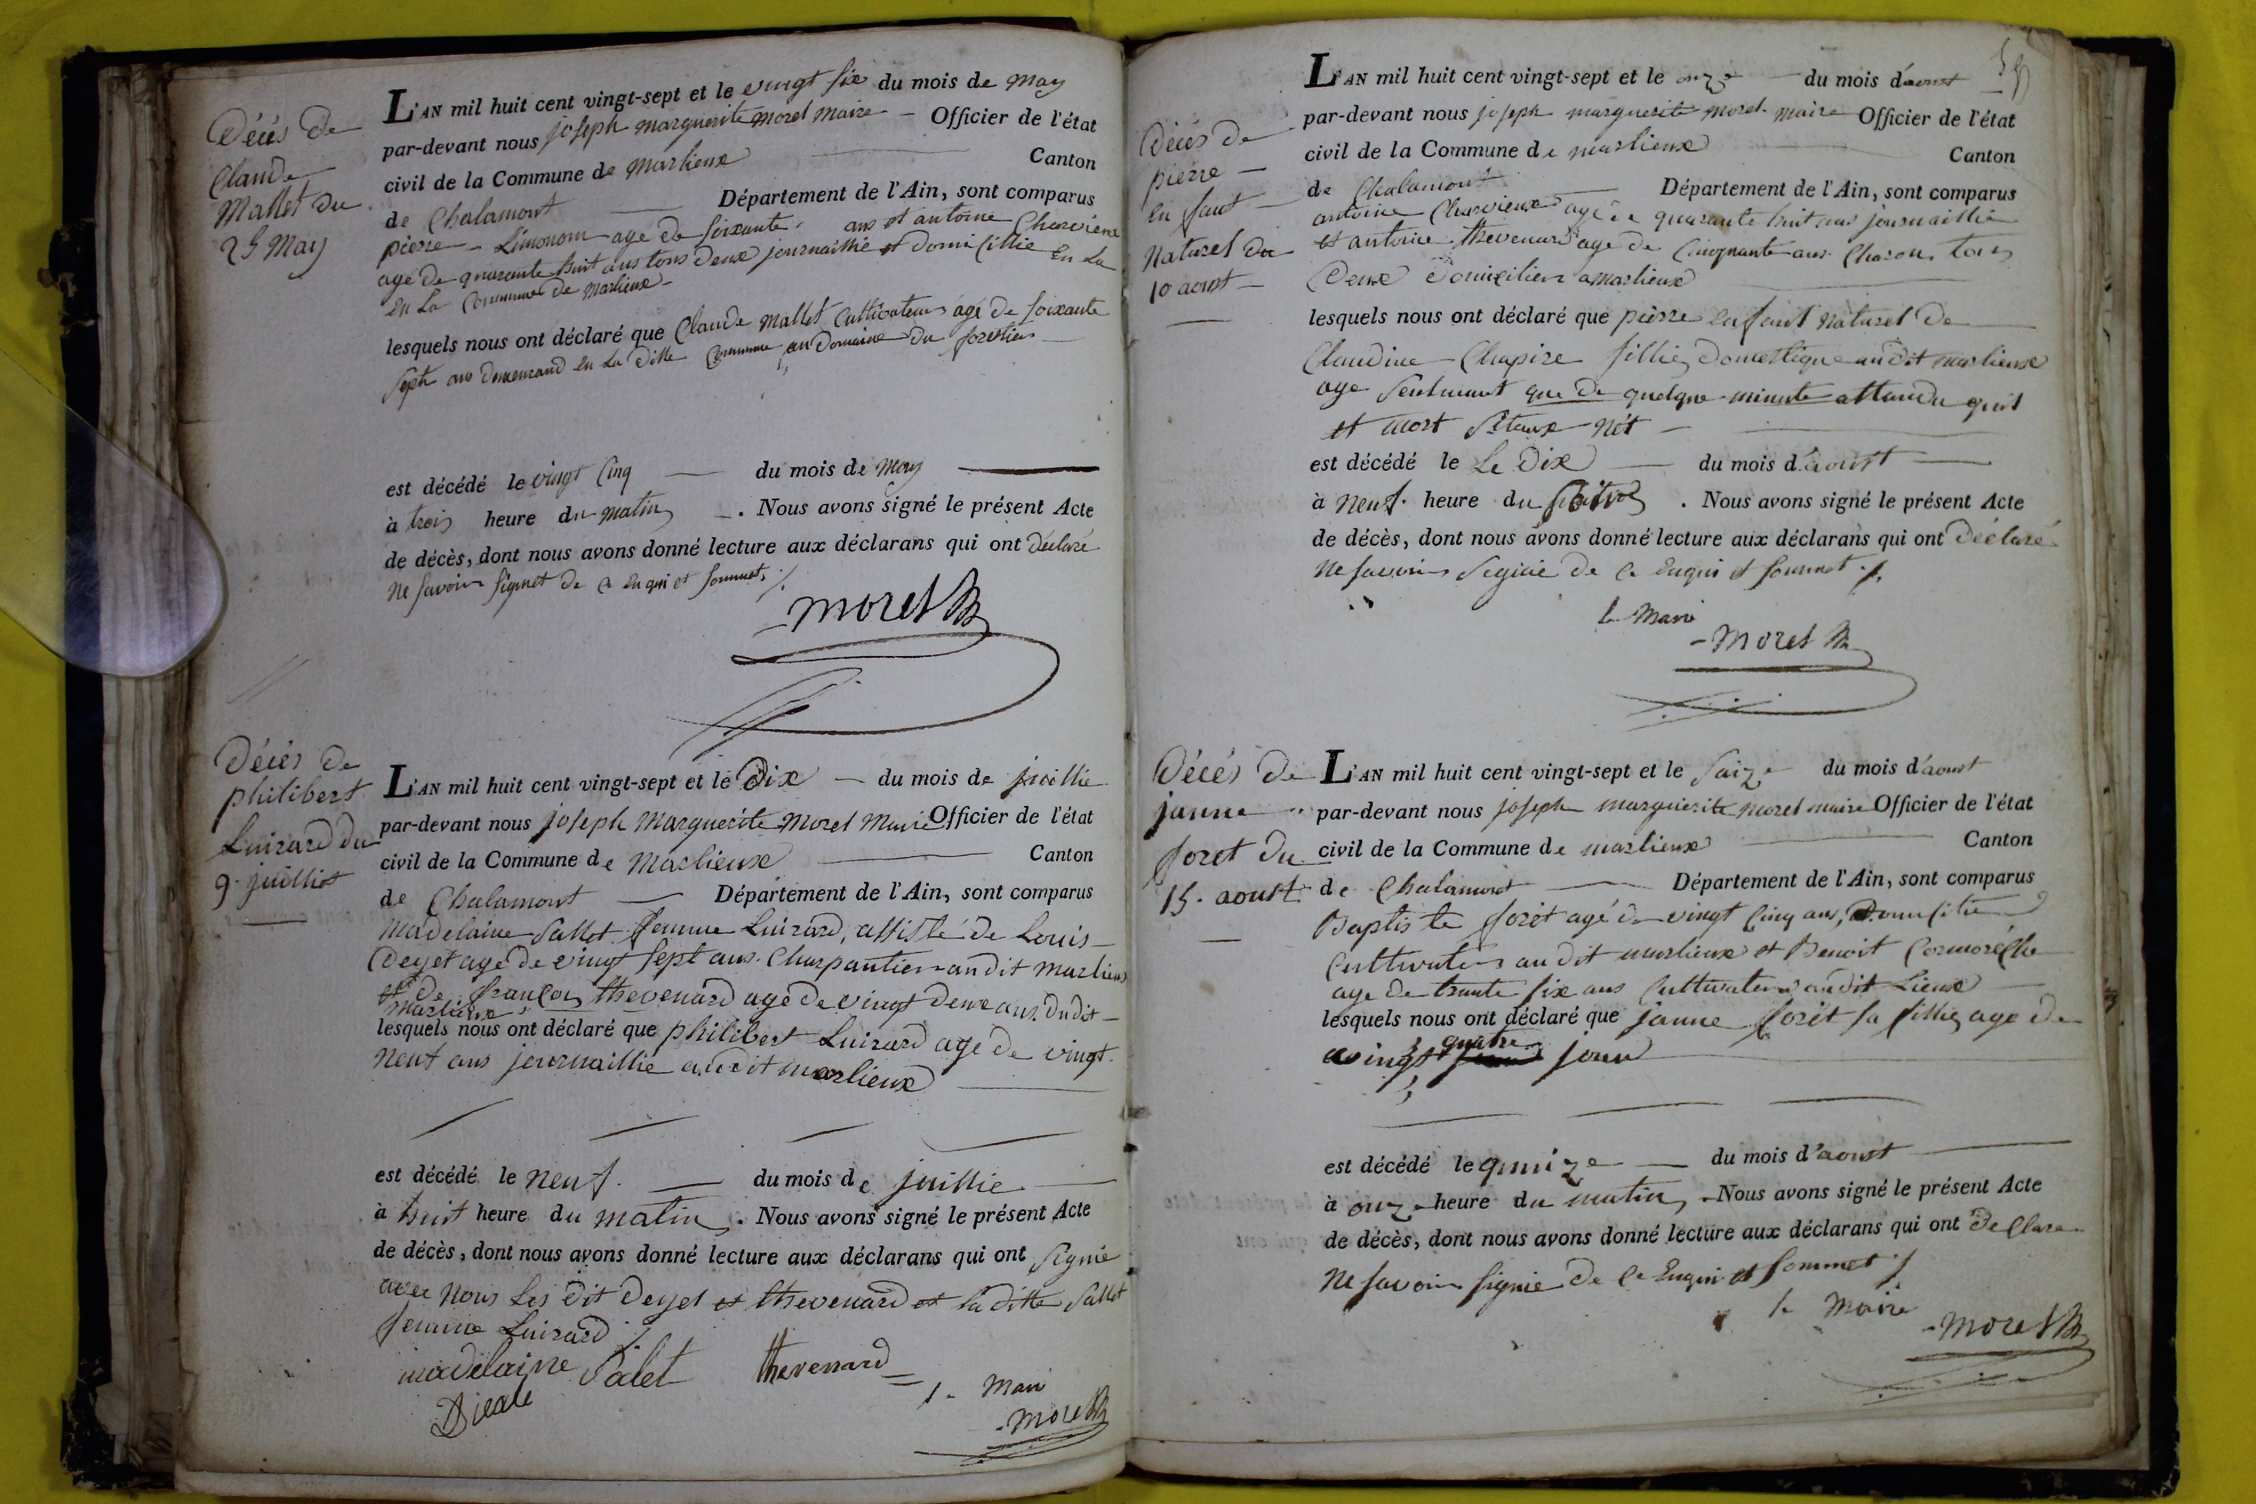 Décés de
Claude
Mallet du
25 May
L'AN mil huit cent vingt-sept et le vingt six du mois de may
par-devant nous joseph marguerite morel maire Officier de l'état
civil de la Commune de marlieux Canton
de Chalamont Département de l'Ain, sont comparus
pierre Limonom age de soixante ans et antoine Charvieux
age de quarante huit ans tous deux journaillié et domicillié En La
En La Commune de marlieux
lesquels nous ont déclaré que Claude mallet Cultivateur agé de soixante
sept ans demeurand en La ditte Commune au Domaine du forestier
est décédé le vingt Cinq du mois de may
à trois heure du matin . Nous avons signé le présent Acte
de décès, dont nous avons donné lecture aux déclarans qui ont déclaré
ne savoir signet de ce enqui et sommet
morel
Décés de
philibert
Luizard du
9 juilliet
L'AN mil huit cent vingt-sept et le Dix du mois de juillie
par-devant nous joseph marguerite morel maire Officier de l'état
civil de la Commune de marlieux Canton
de Chalamont Département de l'Ain, sont comparus
madelaine Sallet femme Luizard, assisté de Louis
Deyet age de vingt sept ans Charpantier audit marlieux
et de françois thevenard age de vingt deux ans dudit
marlieux
lesquels nous ont déclaré que philibert Luizard agé de vingt
neuf ans journaillie audit marlieux
est décédé le neuf du mois de juillie
à huit heure du matin . Nous avons signé le présent Acte
de décès, dont nous avons donné lecture aux déclarans qui ont signié
avec nous Les dit Deyet et thevenard et la ditte Sallet
femme Luizard
madelaine Salet thevenard
le Maire
morel
Décés de
pierre
en fant
Naturel du
10 aoust
L'AN mil huit cent vingt-sept et le onze du mois d'aoust
par-devant nous joseph marguerite morel maire Officier de l'état
civil de la Commune de marlieux Canton
de Chalamont Département de l'Ain, sont comparus
antoine Charvieux agé de quarante huit ans journaillié
et antoine thevenard age de Cinquante ans Charon tous
Deux domicilier a marlieux
lesquels nous ont déclaré que pierre enfant naturel de
Claudine Chapire fillie domestique audit marlieux
age seulmant que de quelque minute attandu quil
et mort sitaux nét
est décédé le Le Dix du mois d'aoust
à neuf heure du soir . Nous avons signé le présent Acte
de décès, dont nous avons donné lecture aux déclarans qui ont déclaré
ne savoir signié de ce enqui et sommet
le Maire
morel
Décés de
janne
foret du
15 aoust
L'AN mil huit cent vingt-sept et le saize du mois d'aoust
par-devant nous joseph marguerite morel maire Officier de l'état
civil de la Commune de marlieux Canton
de Chalamont Département de l'Ain, sont comparus
Baptiste foret agé de vingt Cinq ans, domicilié
Cultivateur audit marlieux et Benoit Cormoréche
age de trante six ans Cultivateur audit Lieux
lesquels nous ont déclaré que janne forét sa fillie age de
vingt quatre jour
est décédé le quinze du mois d'aoust
à onze heure du matin . Nous avons signé le présent Acte
de décès, dont nous avons donné lecture aux déclarans qui ont declare
ne savoir signie de ce enqui et sommet
le Maire
morel